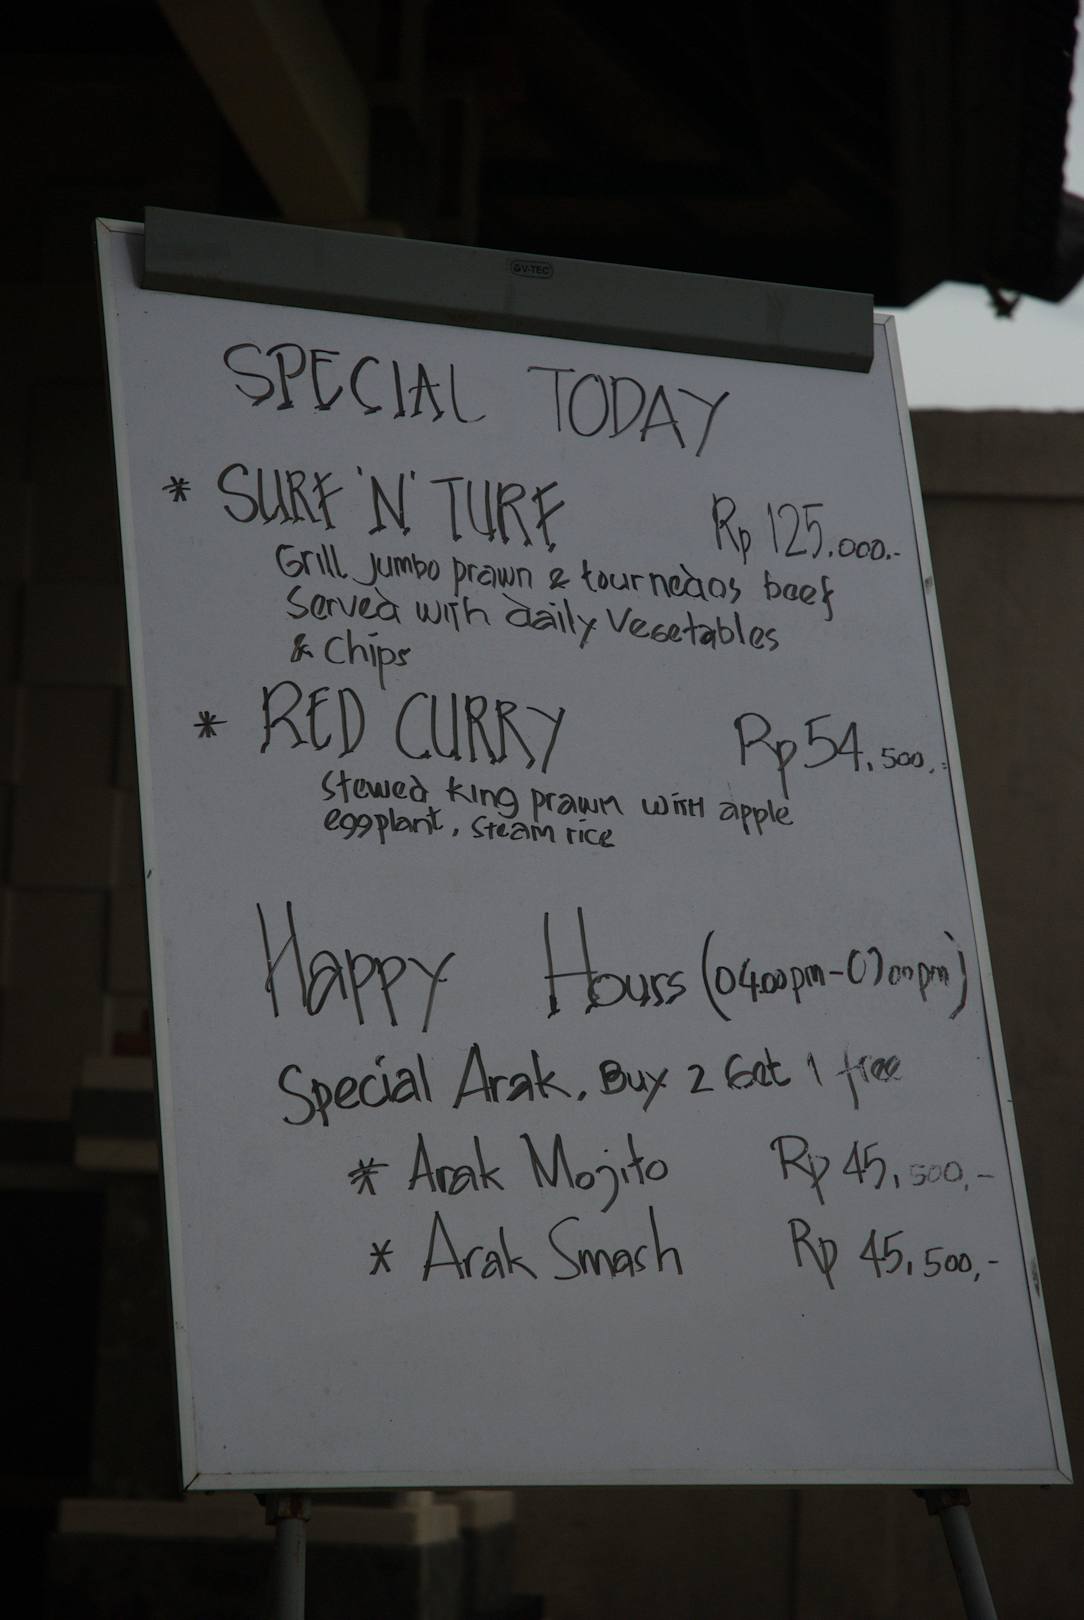 GV-TEC
SPECIAL TODAY
* SURF 'N' TURF Rp 125.000.-
Grill Jumbo prawn & tournedos beef
Served with daily Vegetables
& Chips
* RED CURRY Rp 54.500,-
Stewed king prawn with apple
eggplant, steam rice
Happy Hours (04.00pm-07.00pm)
Special Arak, Buy 2 Get 1 free
* Arak Mojito Rp 45,500,-
* Arak Smash Rp 45,500,-